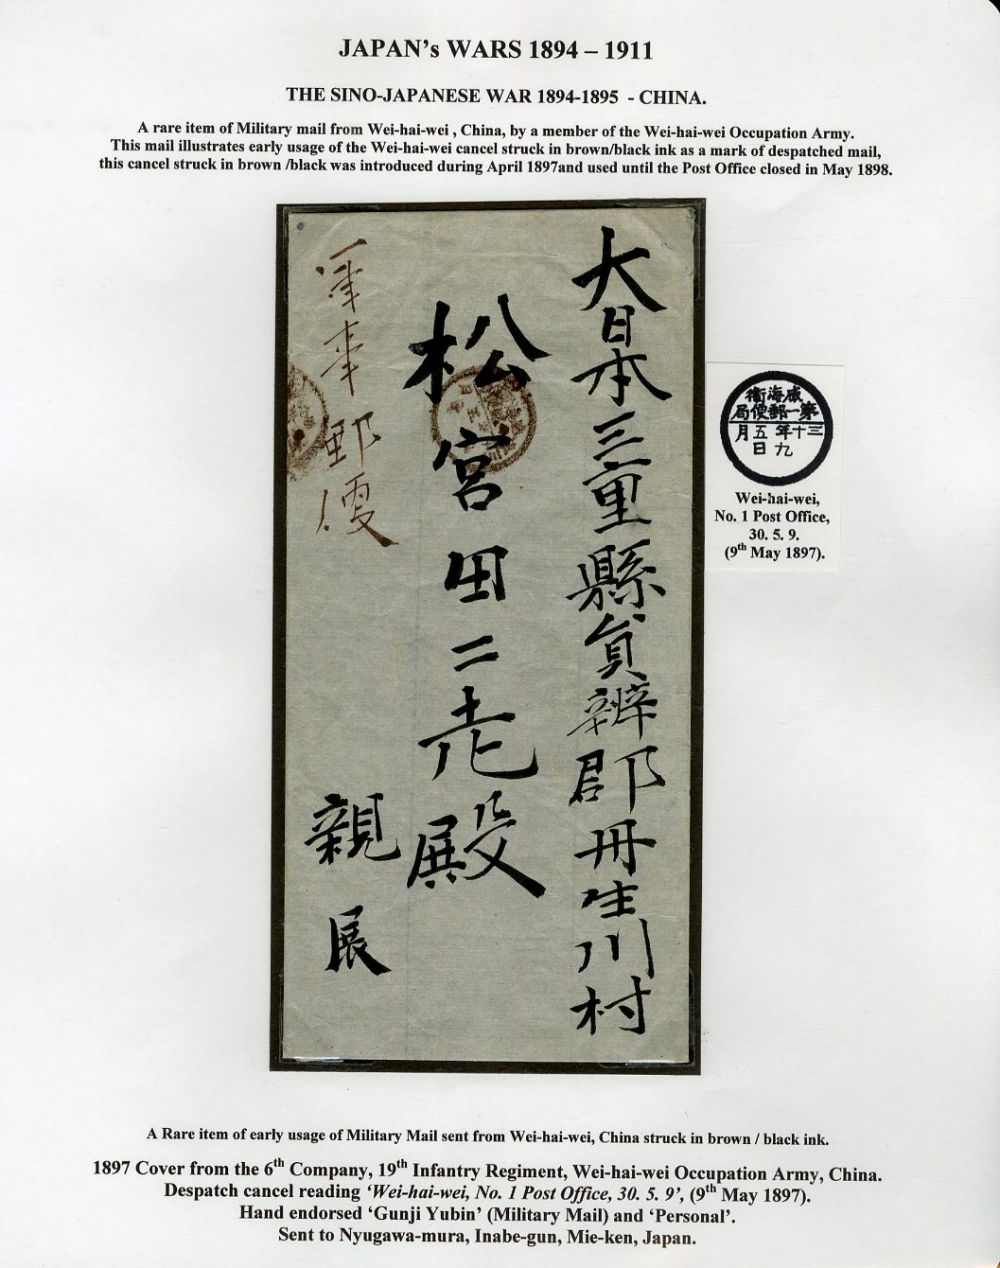 JAPAN's WARS 1894 – 1911
THE SINO-JAPANESE WAR 1894-1895 - CHINA.
A rare item of Military mail from Wei-hai-wei , China, by a member of the Wei-hai-wei Occupation Army.
This mail illustrates early usage of the Wei-hai-wei cancel struck in brown/black ink as a mark of despatched mail,
this cancel struck in brown /black was introduced during April 1897and used until the Post Office closed in May 1898.
大日本三重縣員辨郡丹生川村
松宮田二老殿
親展
軍事郵便
威海衛
第一郵便局
三十年五月
九日
Wei-hai-wei,
No. 1 Post Office,
30. 5. 9.
(9th May 1897).
A Rare item of early usage of Military Mail sent from Wei-hai-wei, China struck in brown / black ink.
1897 Cover from the 6th Company, 19th Infantry Regiment, Wei-hai-wei Occupation Army, China.
Despatch cancel reading ‘Wei-hai-wei, No. 1 Post Office, 30. 5. 9’, (9th May 1897).
Hand endorsed ‘Gunji Yubin’ (Military Mail) and ‘Personal’.
Sent to Nyugawa-mura, Inabe-gun, Mie-ken, Japan.